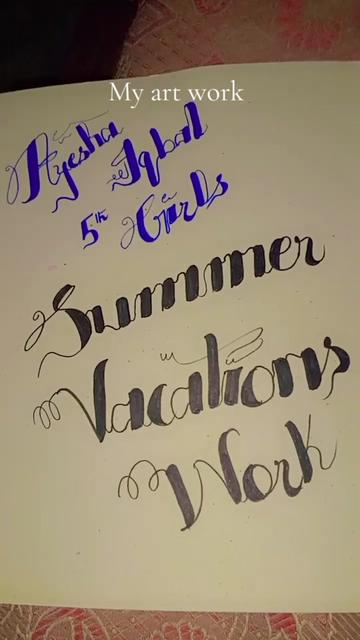 My art work
Ayesha
Iqbal
5th Girls
Summer
Vacations
Work